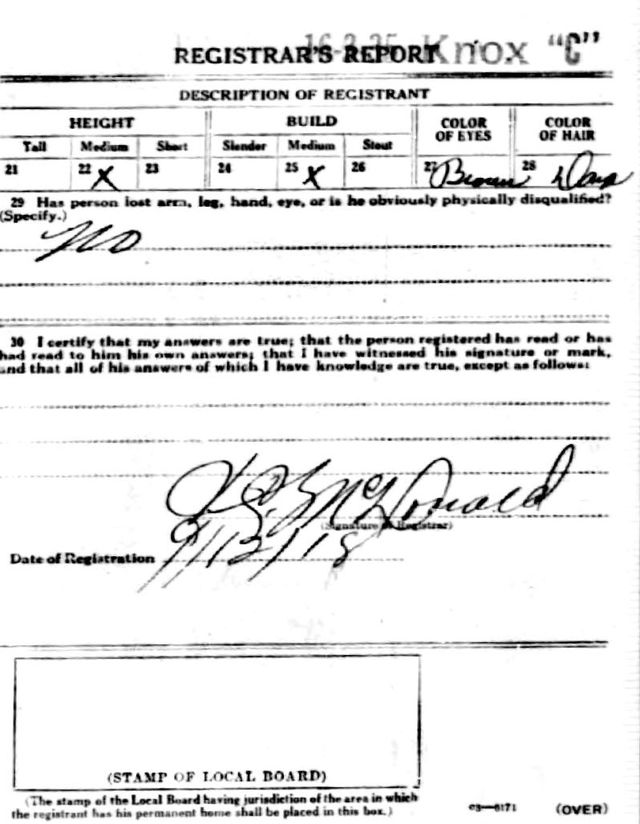 16-3-35 Knox "C"
REGISTRAR'S REPORT
DESCRIPTION OF REGISTRANT
HEIGHT BUILD COLOR OF EYES COLOR OF HAIR
Tall Medium Short Slender Medium Stout
21 22 X 23 24 25 X 26 27 Brown 28 Dark
29 Has person lost arm, leg, hand, eye, or is he obviously physically disqualified?
(Specify.)
No
30 I certify that my answers are true; that the person registered has read or has
had read to him his own answers; that I have witnessed his signature or mark,
and that all of his answers of which I have knowledge are true, except as follows:
McDonald
(Signature of Registrar)
Date of Registration 9/12/18
(STAMP OF LOCAL BOARD)
(The stamp of the Local Board having jurisdiction of the area in which
the registrant has his permanent home shall be placed in this box.)
03—6171 (OVER)